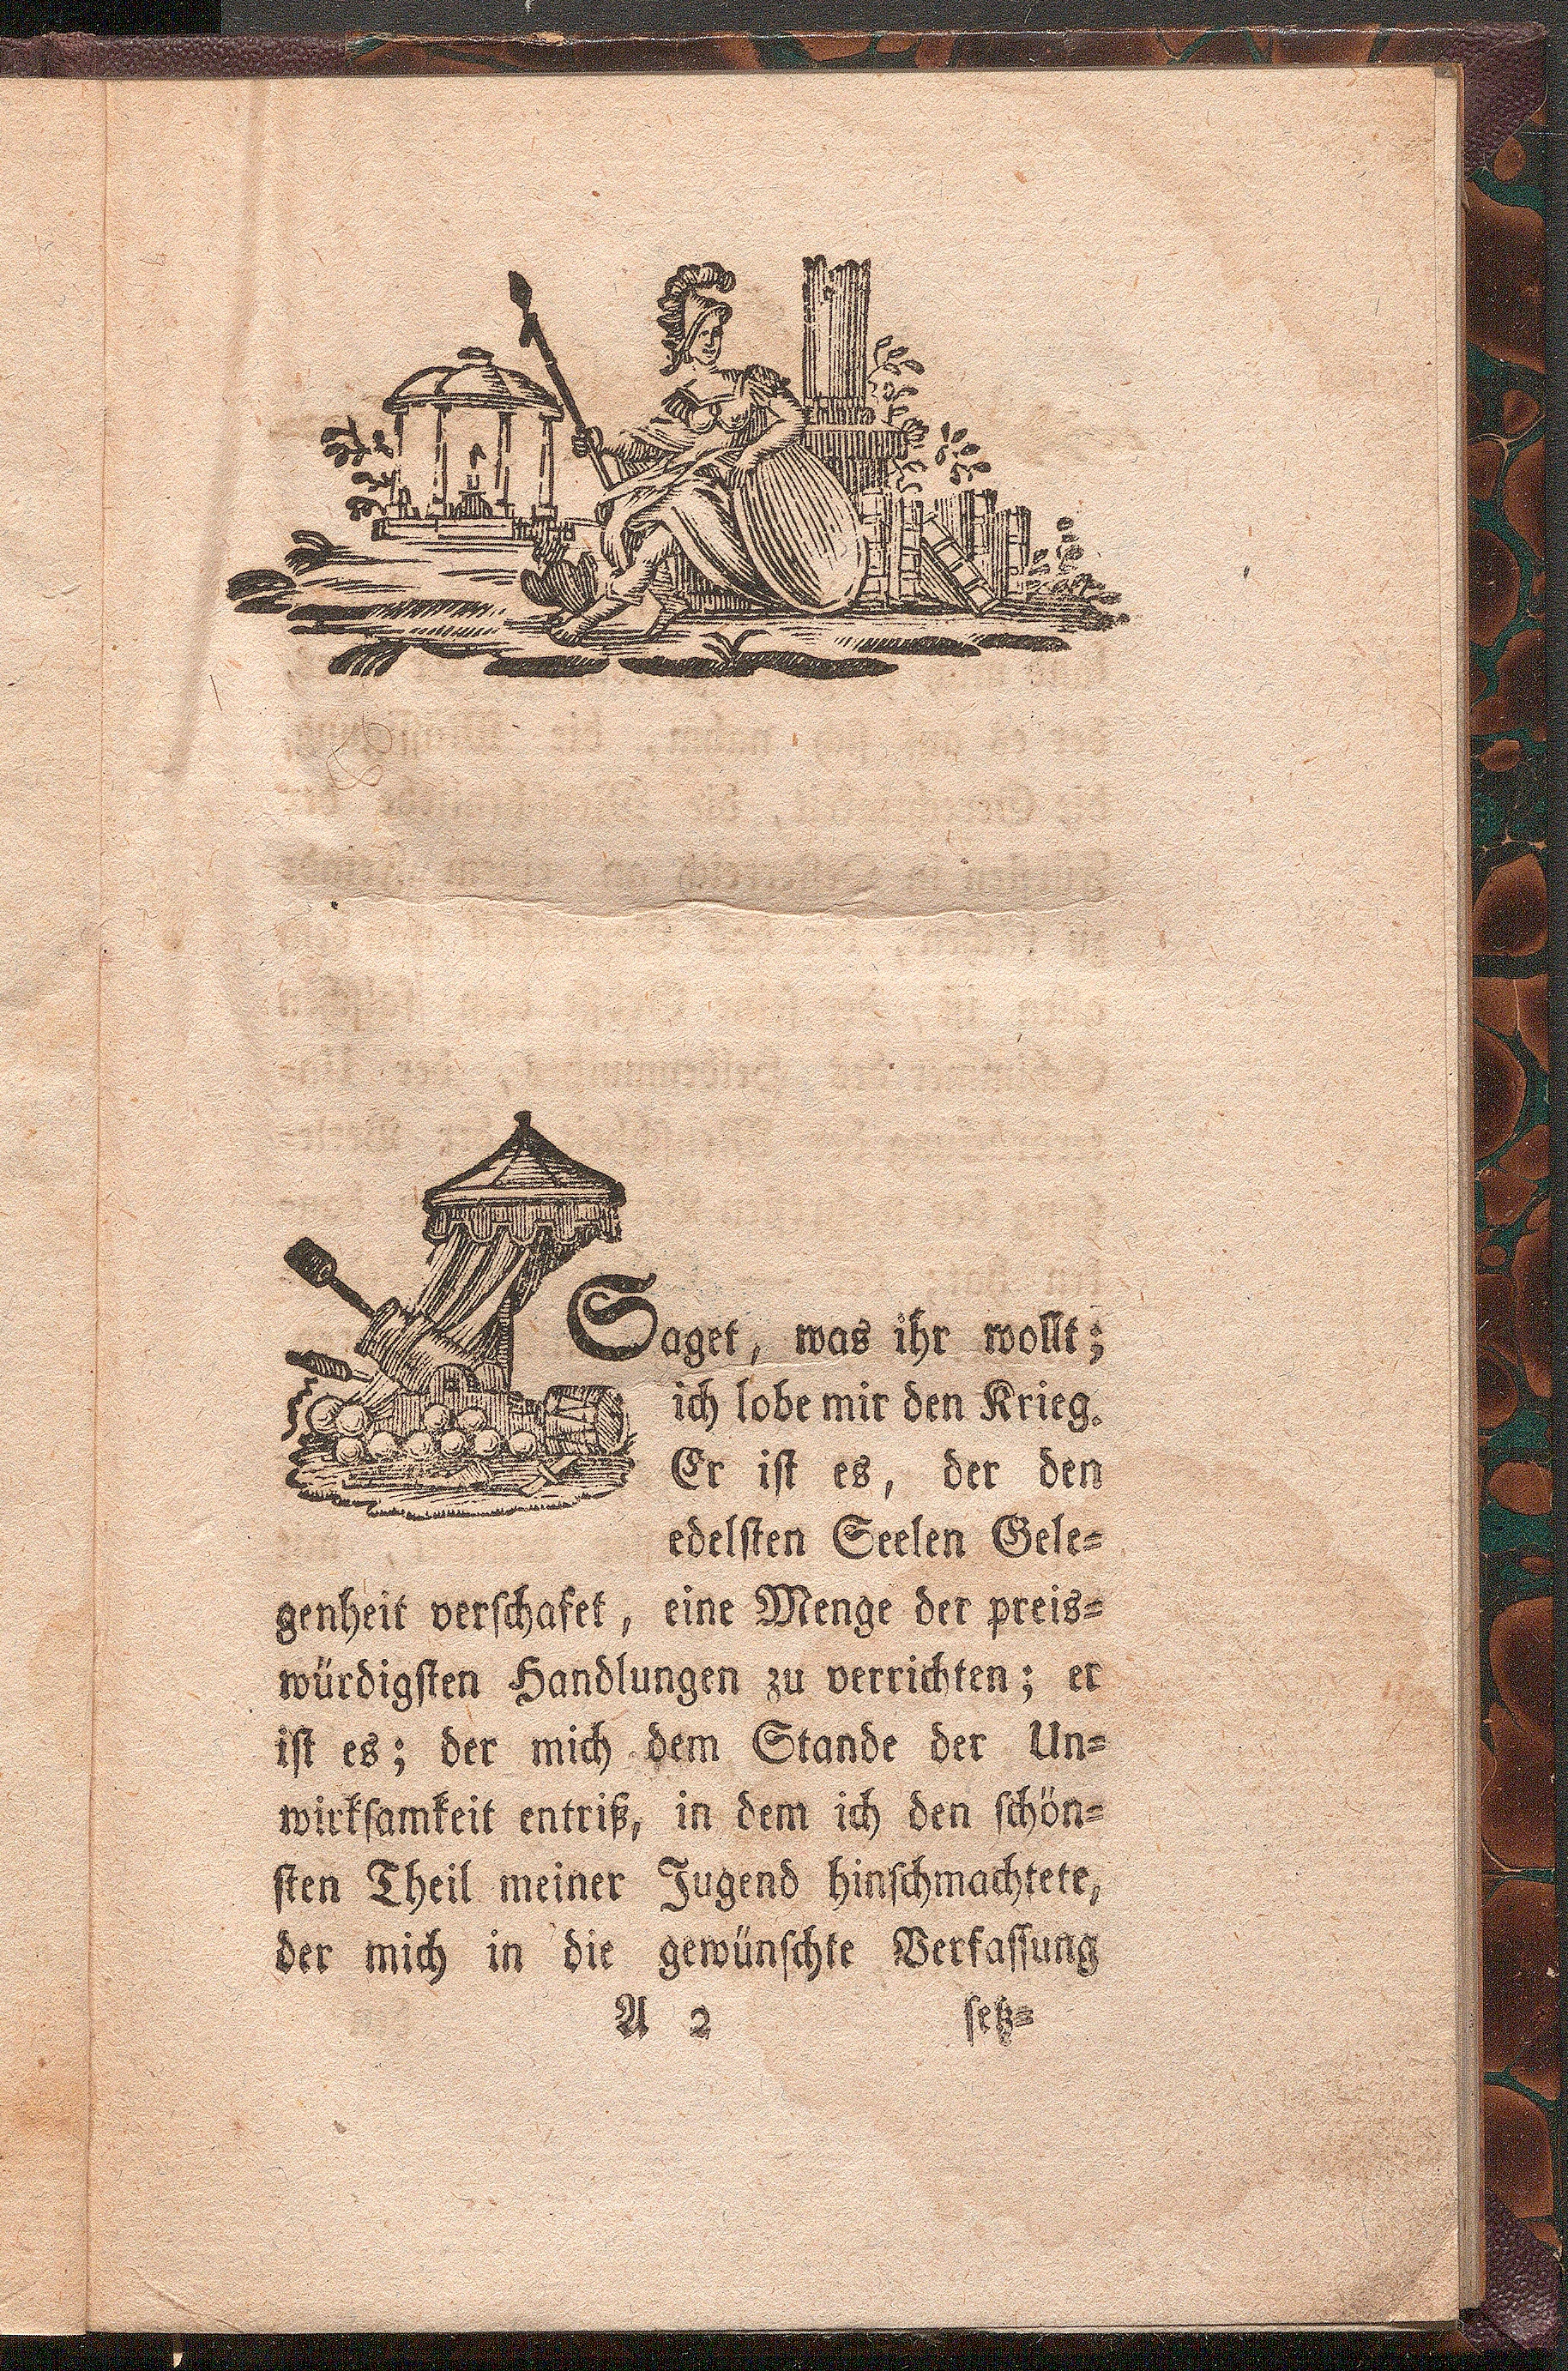 Saget, was ihr wollt;
ich lobe mir den Krieg.
Er ist es, der den
edelsten Seelen Gele=
genheit verschafet, eine Menge der preis=
würdigsten Handlungen zu verrichten; er
ist es; der mich dem Stande der Un=
wirksamkeit entriß, in dem ich den schön=
sten Theil meiner Jugend hinschmachtete,
der mich in die gewünschte Verfassung
A 2 setz=